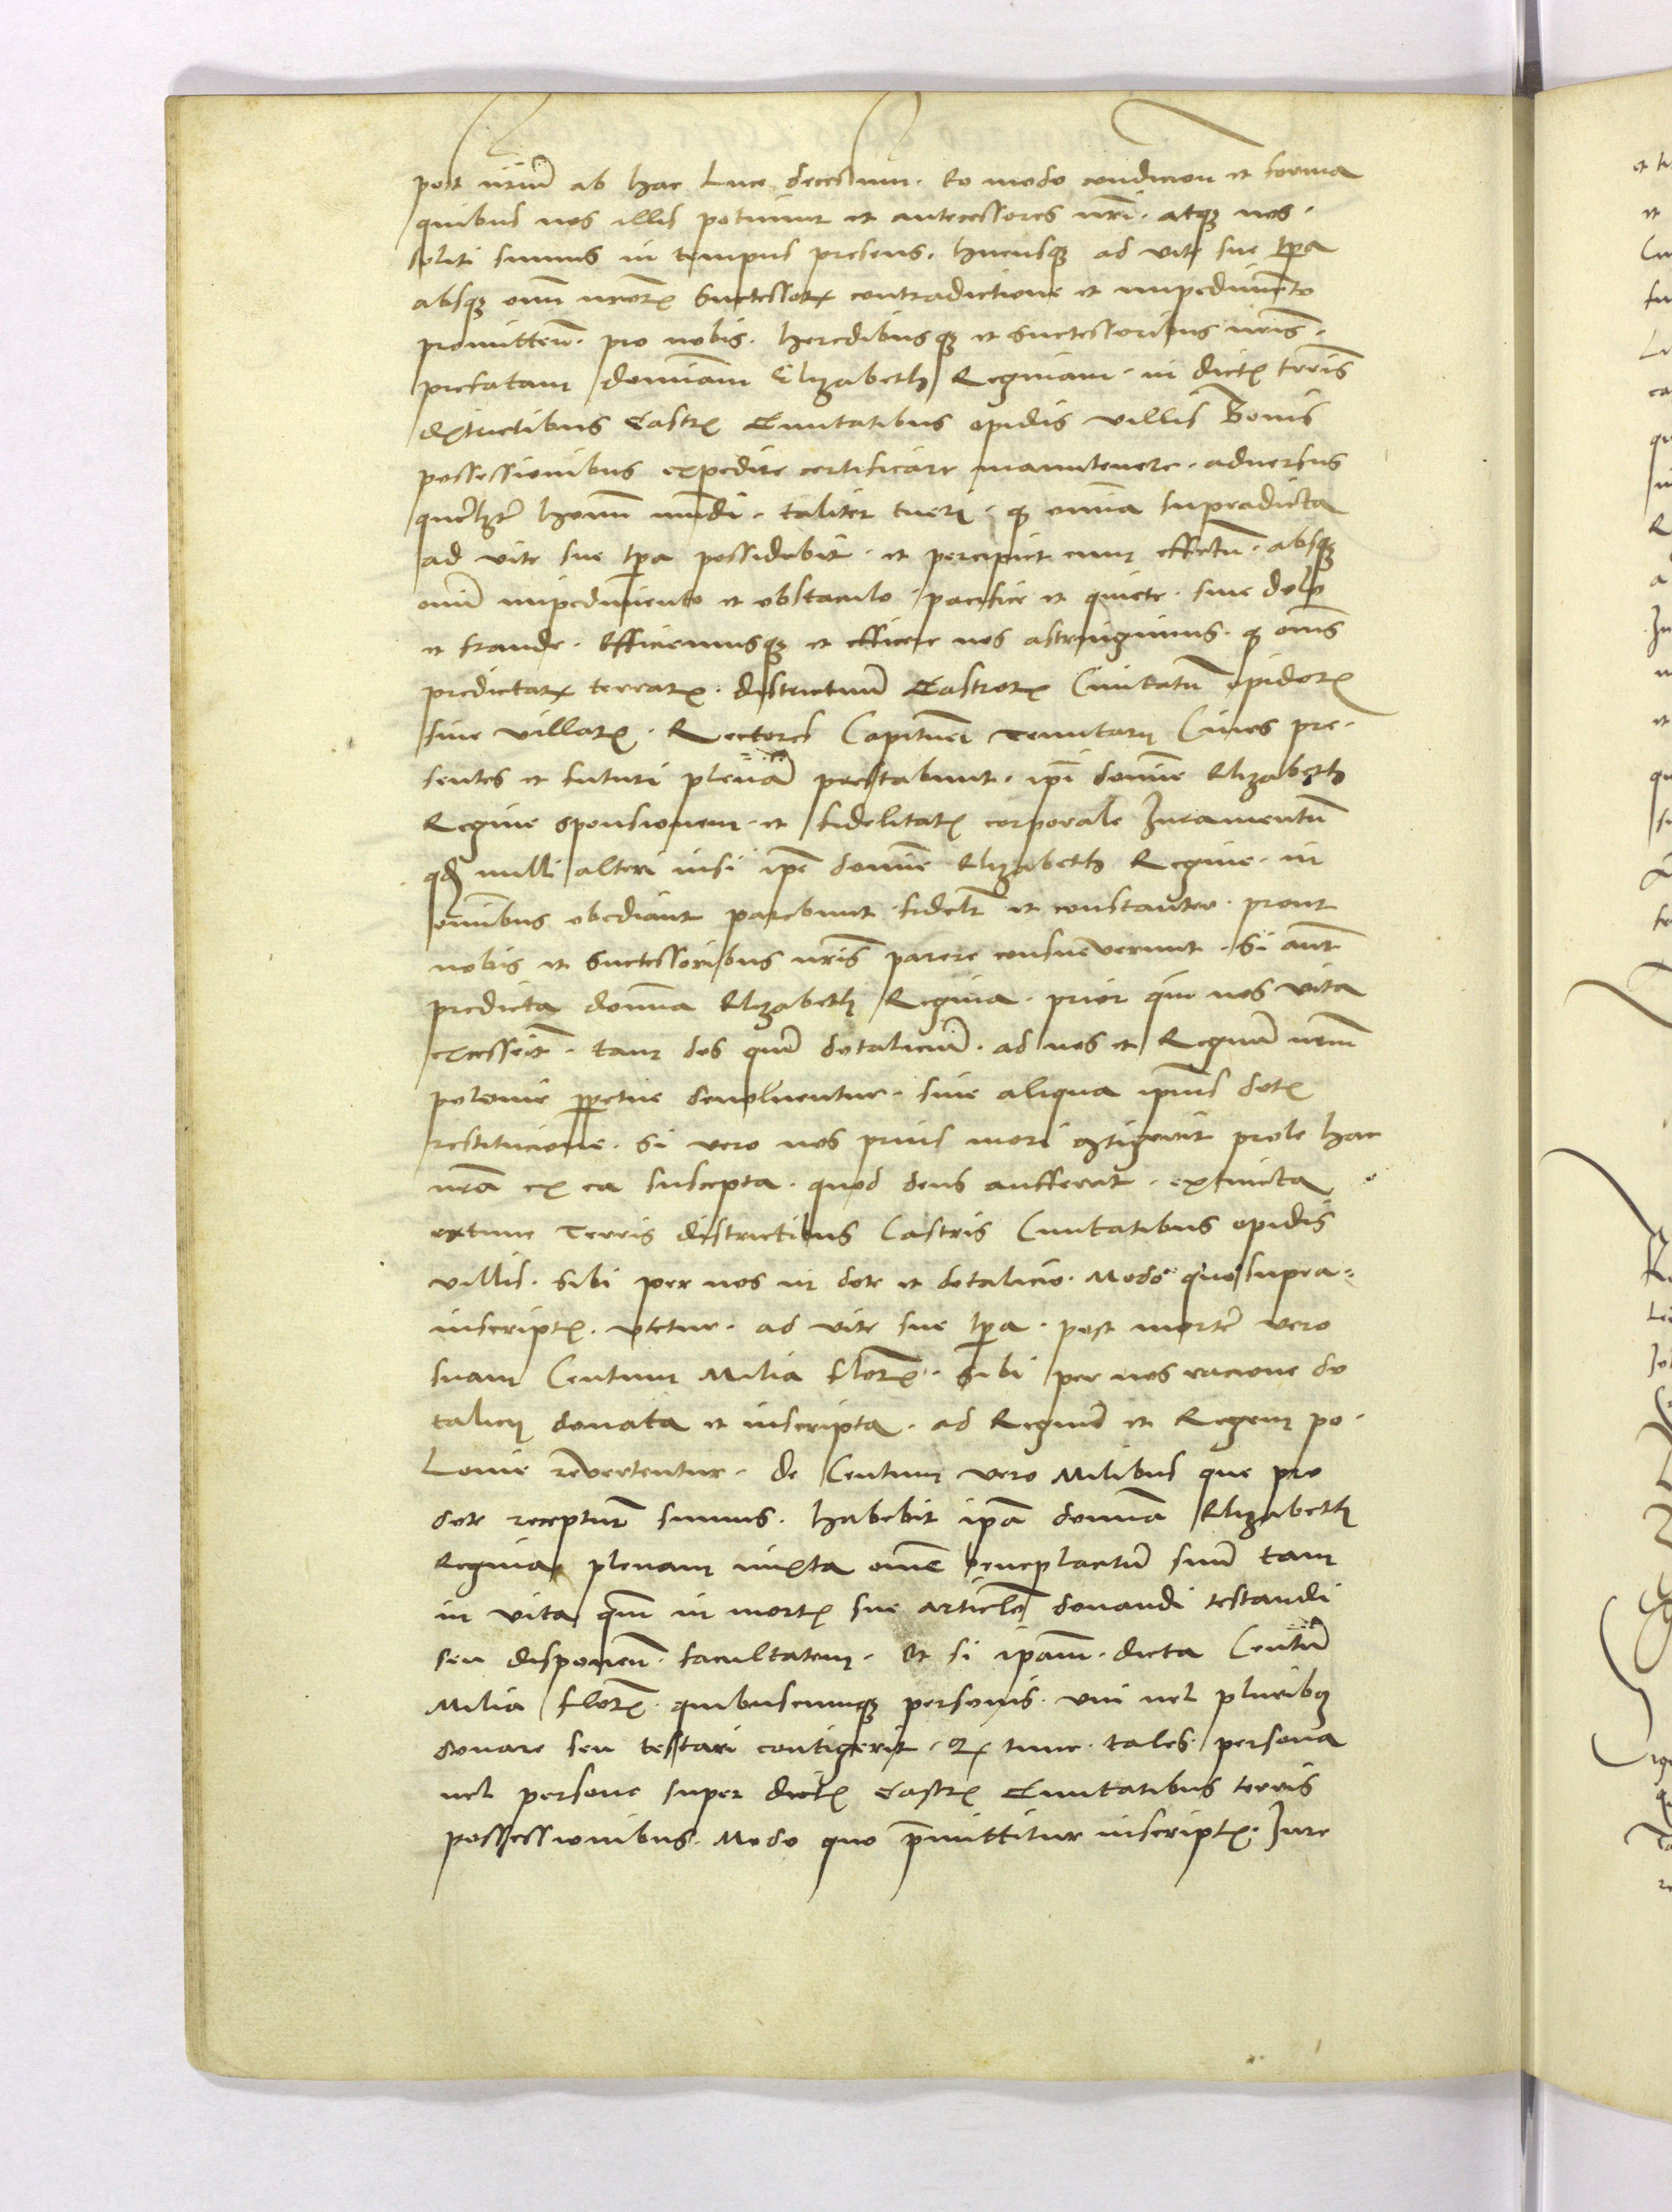 post nrum̄ ab hac Luce decessum. Eo modo condicion et forma
quibus nos illis potimur et antecessores nrī. atqꝫ nos.
soliti sumus in tempus presens. hucusqꝫ ad vite sue tp̄a
absqꝫ omī nrorꝝ Successorꝝ contradictione et impedimento
promitten̄. pro nobis. heredibusqꝫ et Successoribus nrīs.
prefatam dominam Elizabeth Reginam. in dictꝭ terris
districtibus Castrꝭ Ciuitatibus opidis villis Bonis
possessionibus expedire certificare manutenere. aduersus
quēlꝫ homīm mundi. taliter tueri. qꝫ omnia supradicta
ad vite sue tp̄a possidebit. et percipiet cum effectu. absqꝫ
omī impedimento et obstaculo pacifice et quiete. sine dolo
et fraude. Efficiemusqꝫ et efficere nos astringimus. qꝫ om̄s
predictarꝝ terrarꝝ. districtuum Castrorꝝ Ciuitatū opidorꝝ
siue villarꝝ. Rectores Capitanei Tenutarij Ciues pre-
sentes et futuri plenā prestabunt. ip̄i domīe Elizabeth
Regine sponsionem et fidelitatꝭ corporale Iuramentū
qđ nulli alteri nisi ip̄e domīe Elizabeth Regine. in
omnibus obediant parebunt fidelr̄ et constanter. prout
nobis et Successoribus nrīs parere consueverunt. Si aūt
predicta domīa Elizabeth Regina. prior qm̄ nos vita
excesserit. tam dos qm̄ dotalicium. ad nos et Regnū nrūm
polonie ꝑpetue deuoluentur. sine aliqua ip̄ius dotꝭ
restitucione. Si vero nos prius mori ꝯtigerit prole hac
nrā ex ea suscepta. quod deus aufferat. extincta
extunc Terris districtibus Castris Ciuitatibus opidis
villis. sibi per nos in dote et dotalicio. Modo quo supra=
inscriptꝭ. vtetur. ad vite sue tp̄a. post mortē vero
suam Centum Milia florꝭ. Sibi per nos racione do
talicij donata et inscripta. ad Regnū et Regem po-
Lonie revertentur. de Centum vero Milibus que pro
dote recepturī sumus. habebit ip̄a domīa Elizabeth
Regina plenam iuxta om̄e beneplacitū suū tam
in vita qm̄ in mortꝭ sue articlo donandi testandi
seu disponen̄. facultatem. Et si ip̄am. dicta Centum
Milia florꝭ. quibuscumqꝫ personis. vni uel pluribꝫ
donare seu testari contigerit. Ex tunc. tales persona
uel persone super dictꝭ Castrꝭ Ciuitatibus terris
possessionibus. Modo quo p̄mittitur inscriptꝭ. Iure